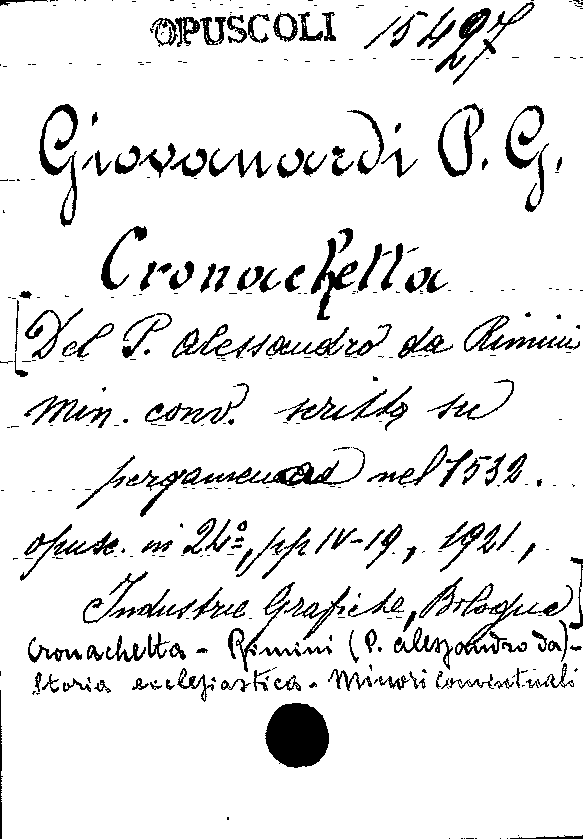 OPUSCOLI 15427
Giovanardi P. G.
Cronachetta
[Del P. Alessandro da Rimini
Min. conv. scritto su
pergamena nel 1532.
opusc. in 24º, pp IV-19, 1921,
Industrie Grafiche, Bologna]
Cronachetta - Rimini (P. Alessandro da) -
Storia ecclesiastica - Minori Conventuali